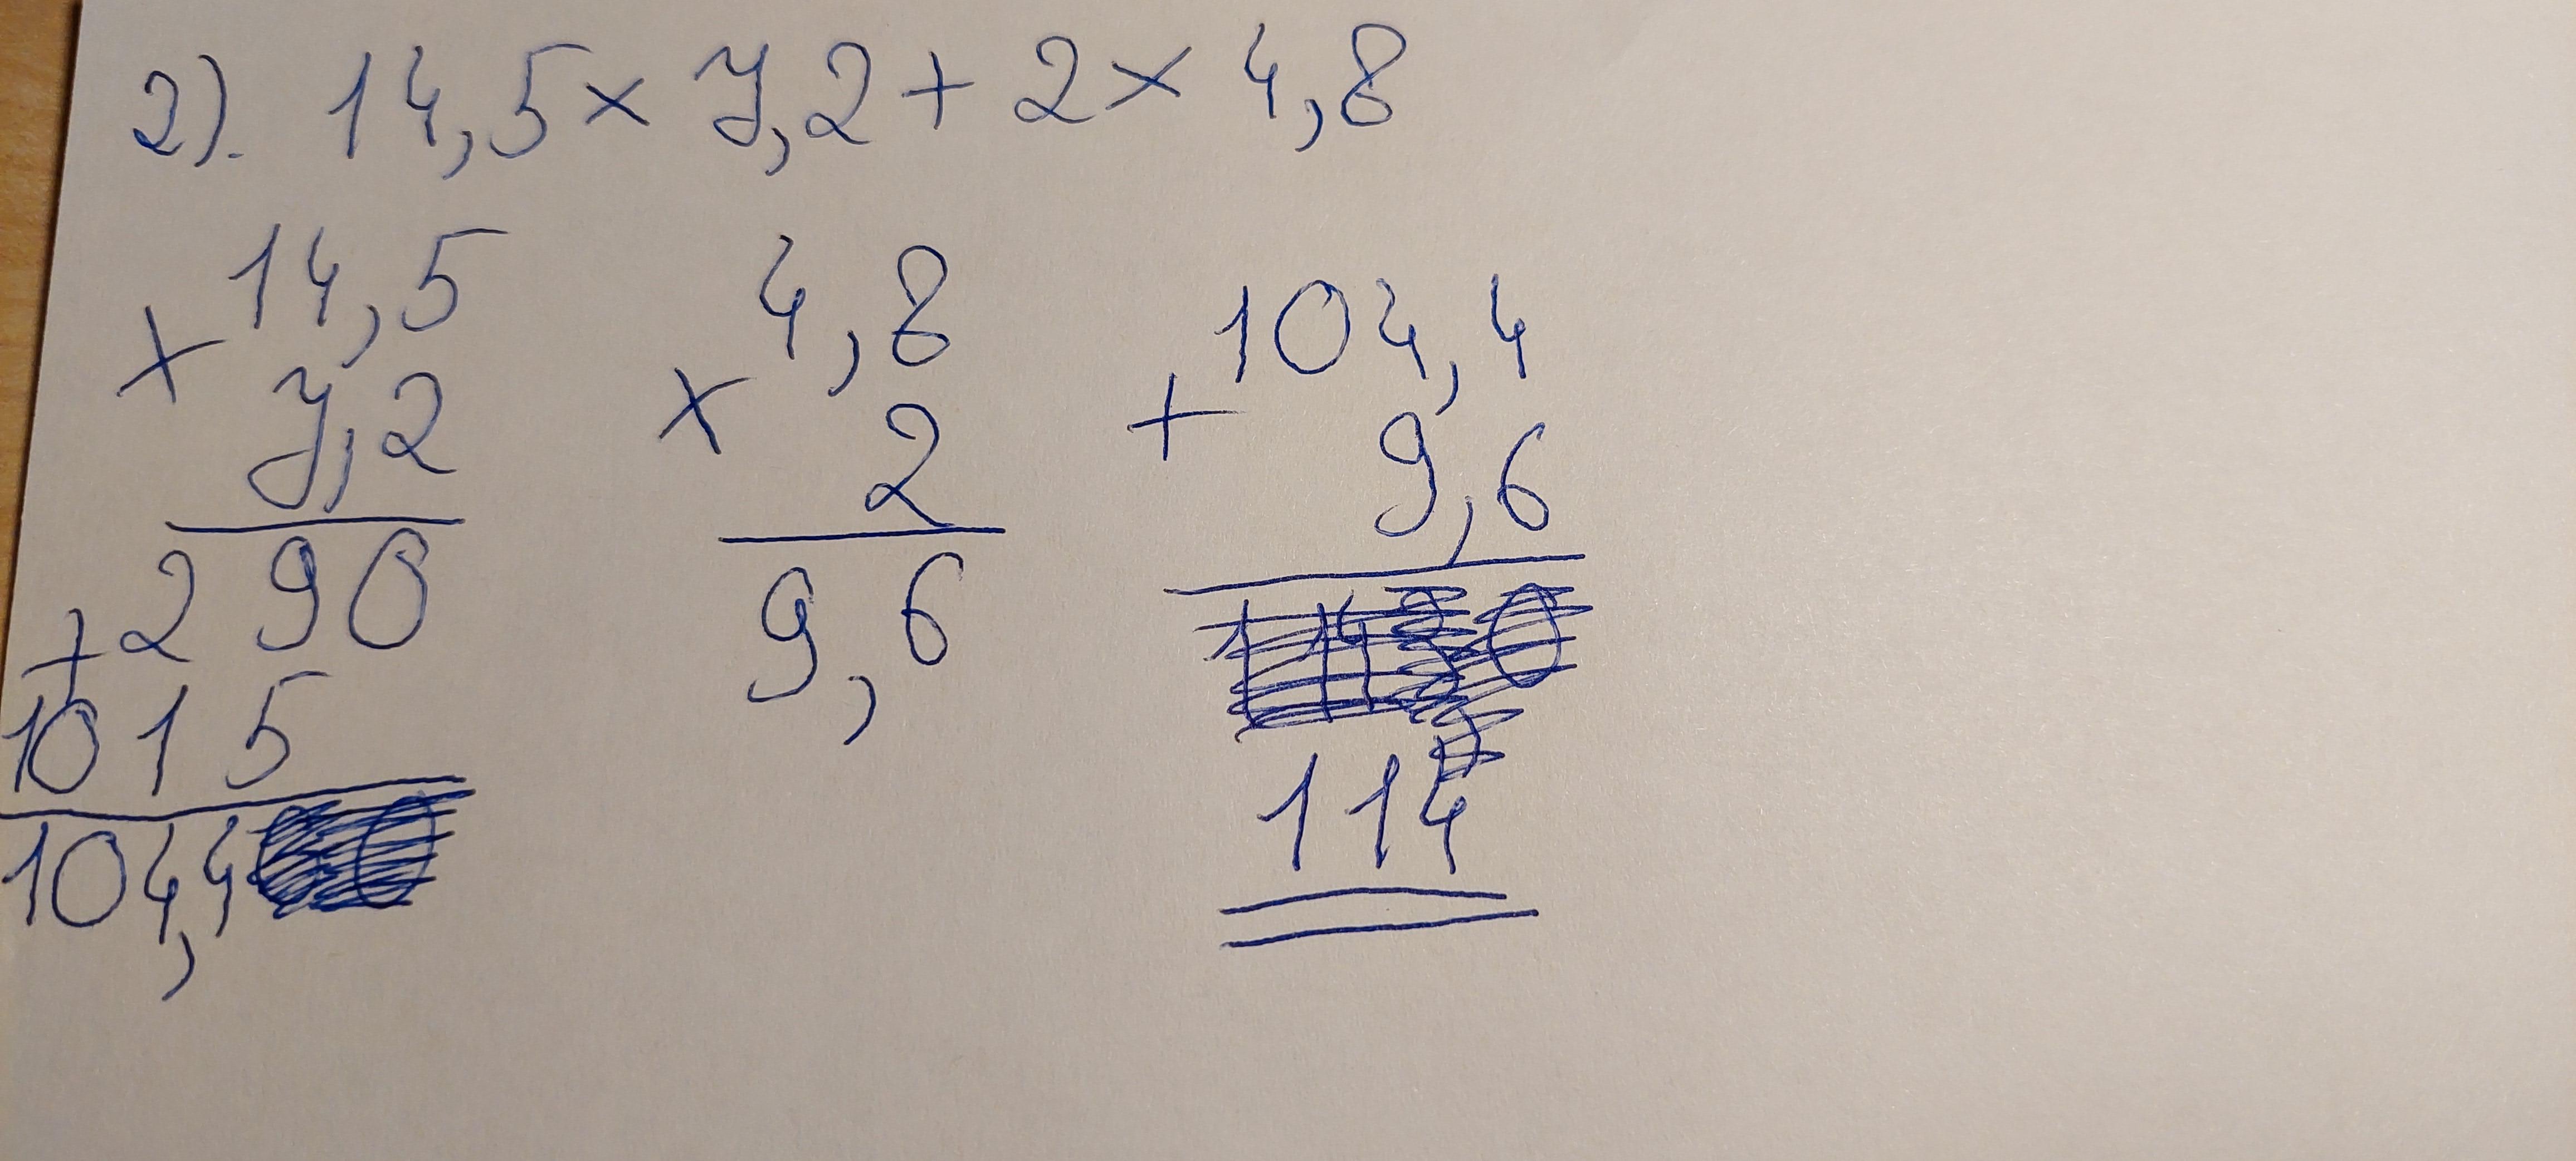 2). 14,5 × 7,2 + 2 × 4,8
14,5
× 7,2
290
+ 1015
104,4
4,8
× 2
9,6
104,4
+ 9,6
114